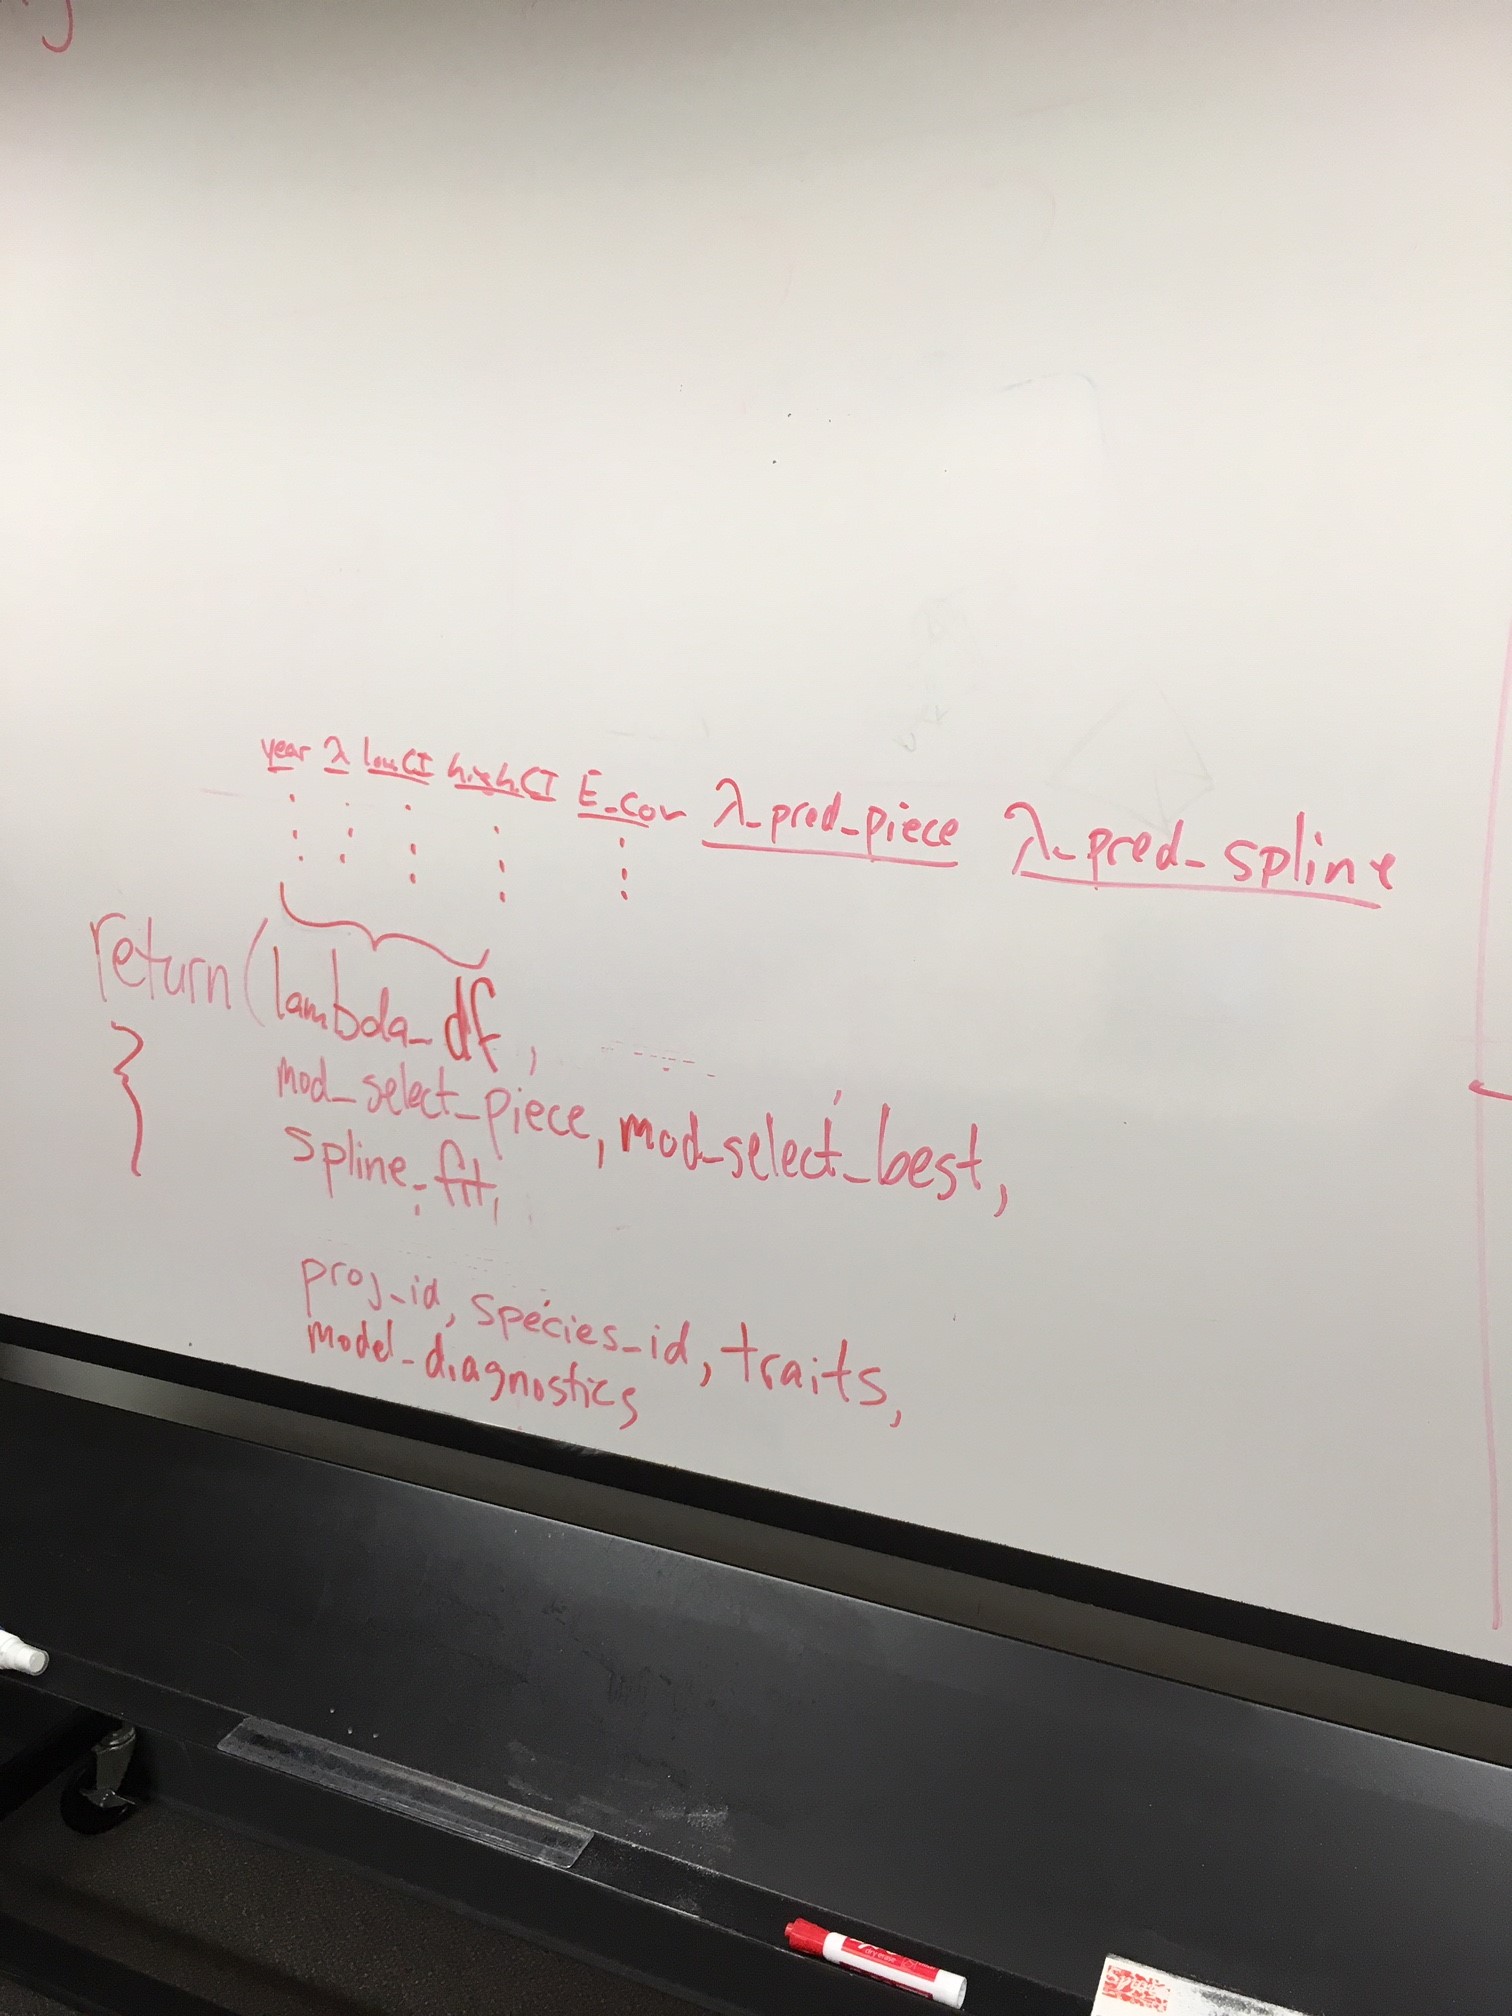 year λ low.CI high.CI E_cov λ_pred_piece λ_pred_spline
return(lambda_df,
mod_select_piece, mod_select_best,
spline_fit,
proj_id, species_id, traits,
model_diagnostics
dry erase